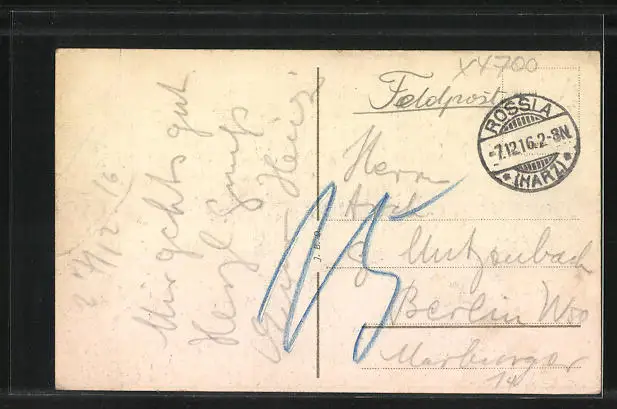 X4700
Feldpost
ROSSLA
-7.12.16.2-3N.
* (HARZ) *
Herrn
G. Mutzenbach
Berlin W50
Marburger
14
J. B. D.
15
7/12 16
Mir gehts gut
Herzl Gruß
Heinz